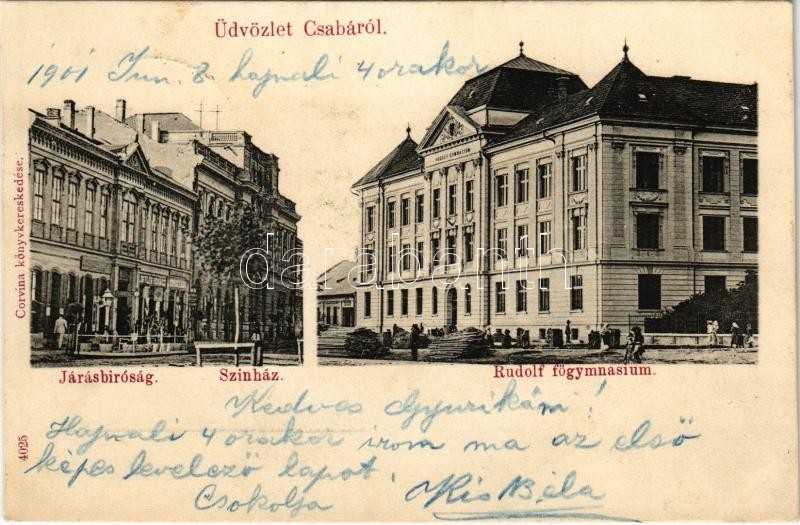 Üdvözlet Csabáról.
1901 Jun. 8 hajnali 4 orakor
RUDOLF GYMNASIUM
darabanth
Corvina könyvkereskedése,
Járásbiróság.
Szinház.
Rudolf főgymnasium.
Kedves Gyurikám!
Hajnali 4 orakor irom ma az első
képes levelező lapot.
Csokolja
Kis Béla
4025